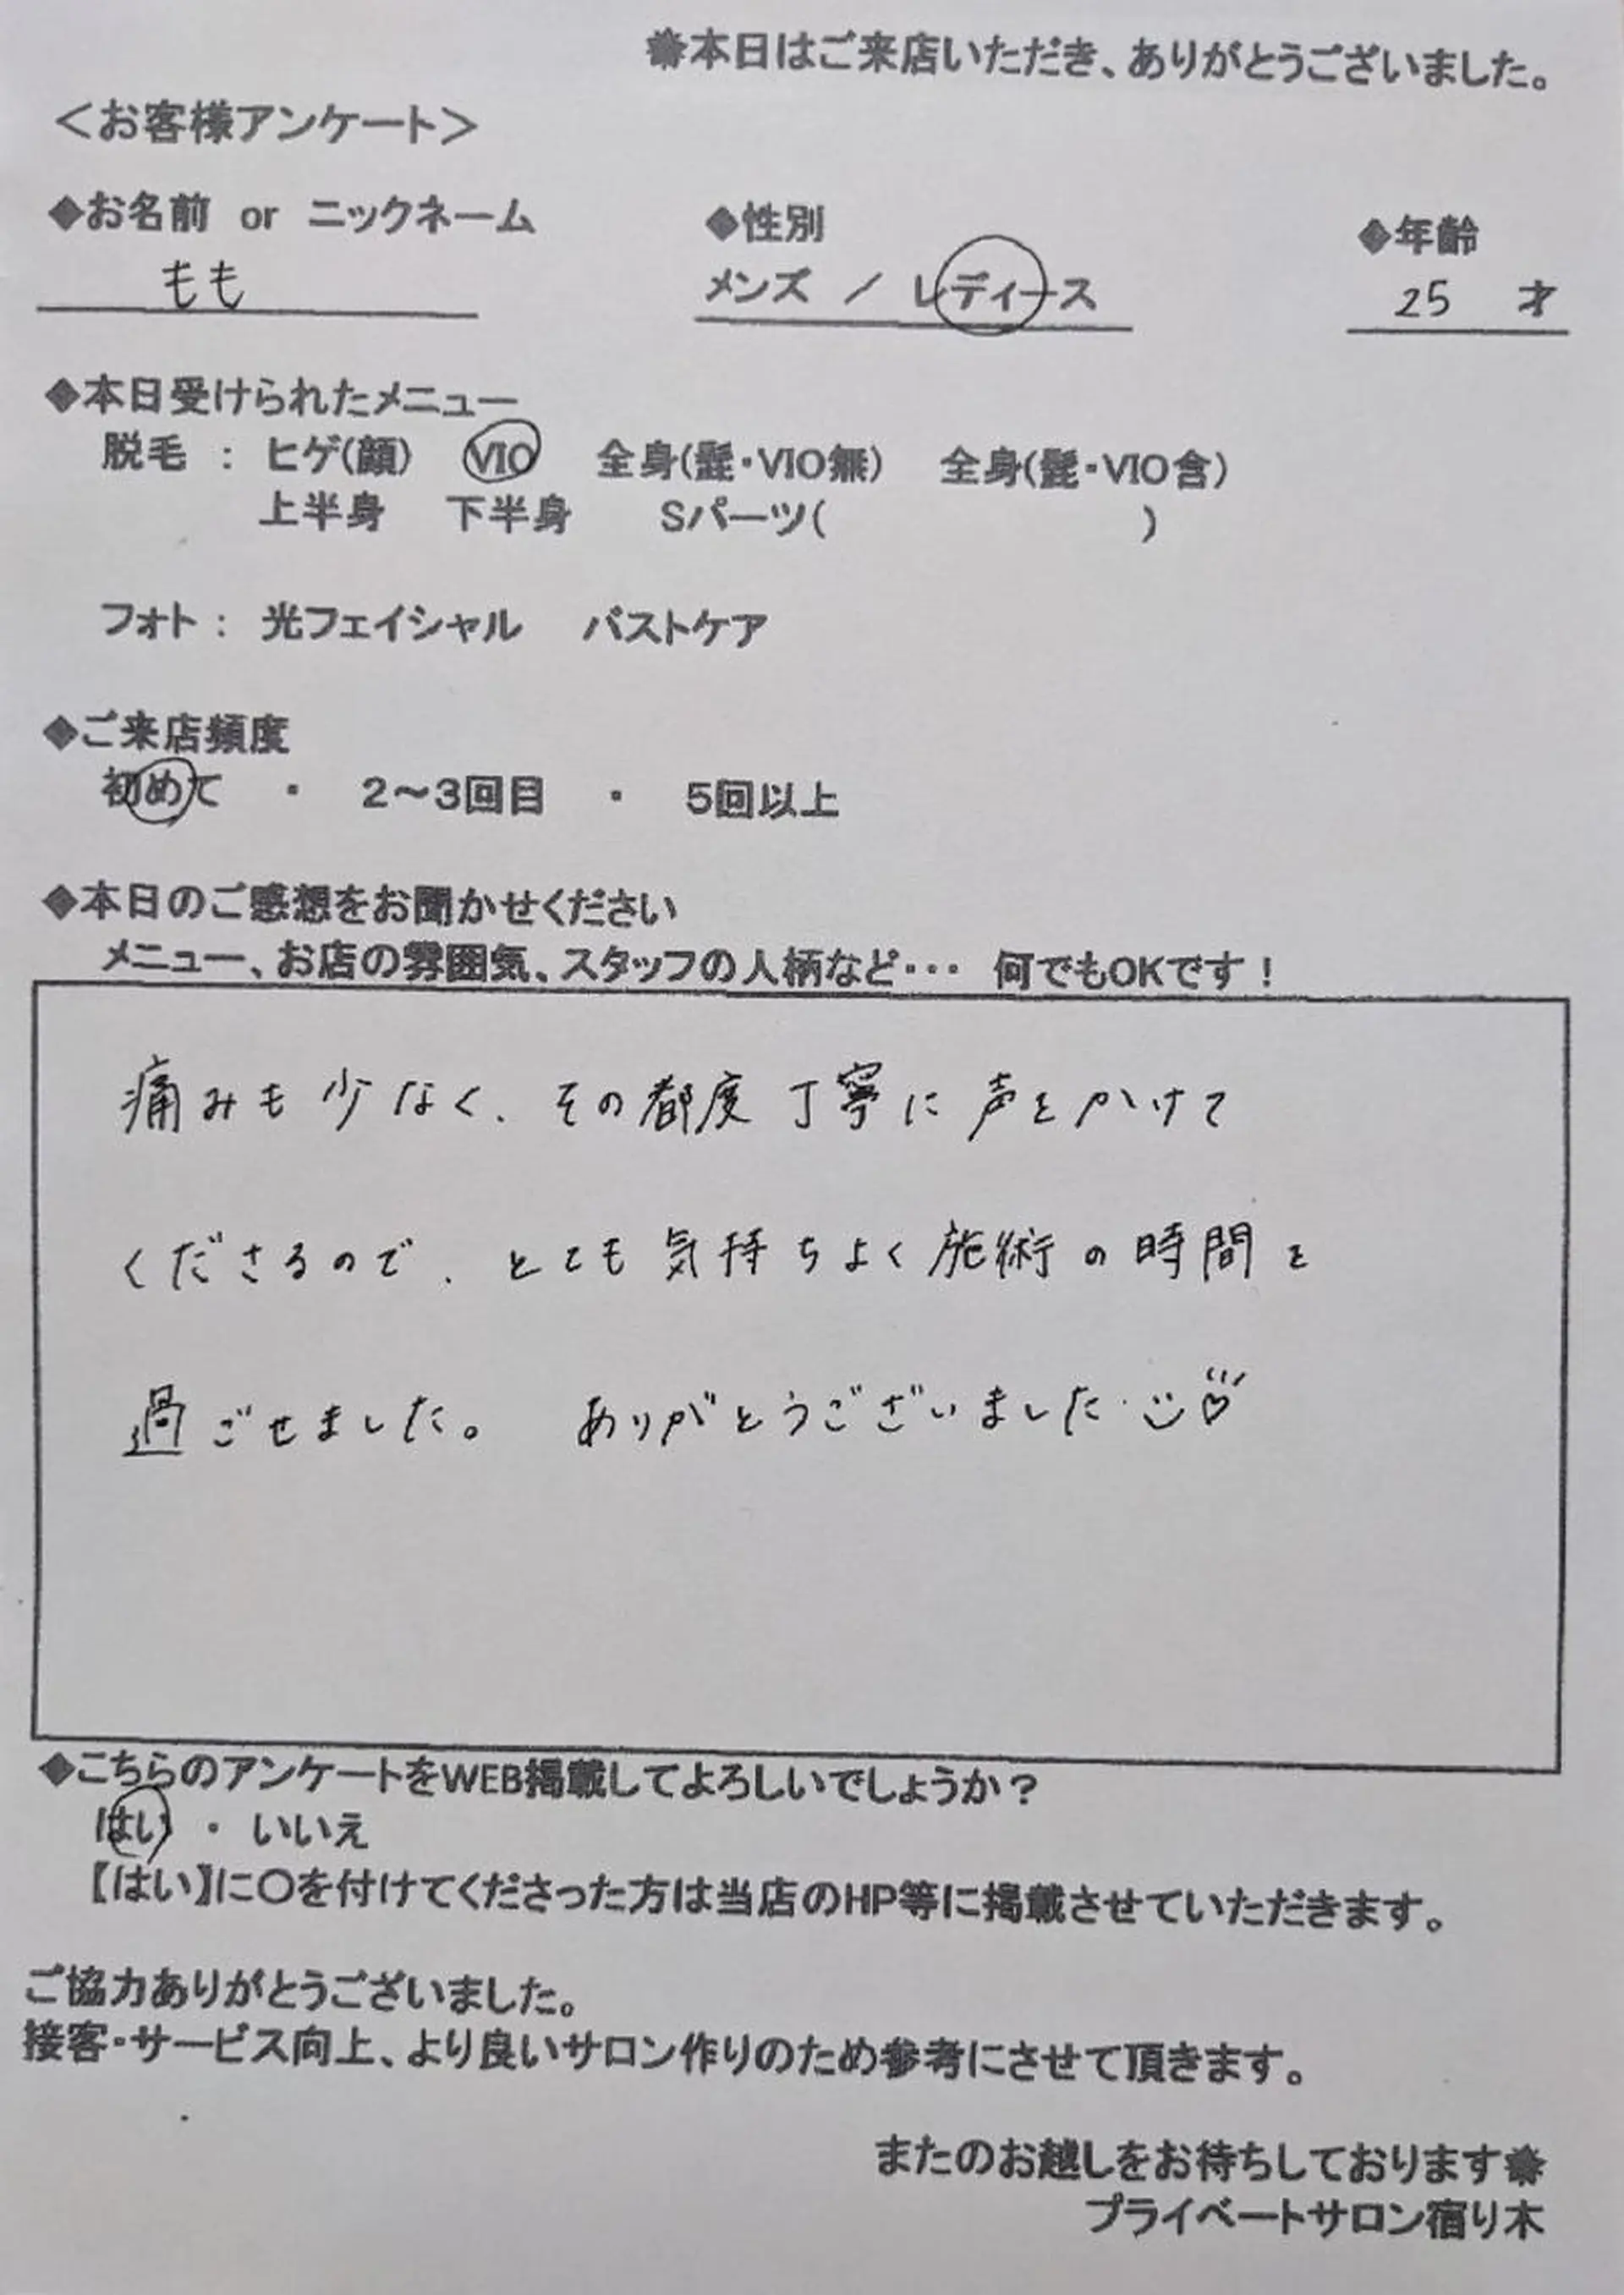 ❃本日はご来店いただき、ありがとうございました。
＜お客様アンケート＞
◆お名前 or ニックネーム ◆性別 ◆年齢
もも メンズ ／ レディース 25 才
◆本日受けられたメニュー
脱毛 ： ヒゲ(顔) VIO 全身(髭・VIO無) 全身(髭・VIO含)
上半身 下半身 Sパーツ( )
フォト ： 光フェイシャル バストケア
◆ご来店頻度
初めて ・ 2～3回目 ・ 5回以上
◆本日のご感想をお聞かせください
メニュー、お店の雰囲気、スタッフの人柄など・・・ 何でもOKです！
痛みも少なく、その都度丁寧に声をかけて
くださるので、とても気持ちよく施術の時間を
過ごせました。 ありがとうございました
◆こちらのアンケートをWEB掲載してよろしいでしょうか？
はい ・ いいえ
【はい】に〇を付けてくださった方は当店のHP等に掲載させていただきます。
ご協力ありがとうございました。
接客・サービス向上、より良いサロン作りのため参考にさせて頂きます。
またのお越しをお待ちしております❃
プライベートサロン宿り木